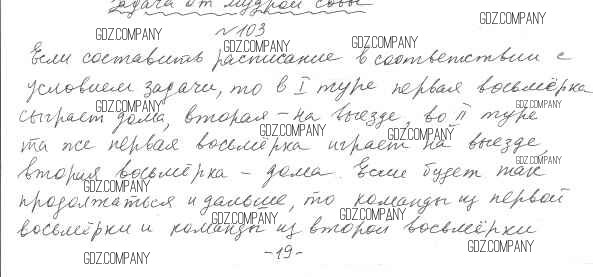 Задача от мудрой совы
GDZ.COMPANY
№103
GDZ.COMPANY GDZ.COMPANY
Если составить расписание в соответствии с
GDZ.COMPANY
условием задачи, то в I туре первая восьмёрка
GDZ.COMPANY GDZ.COMPANY
сыграет дома, вторая – на выезде, во II туре
GDZ.COMPANY GDZ.COMPANY
та же первая восьмёрка играет на выезде,
GDZ.COMPANY
вторая восьмёрка – дома. Если будет так
GDZ.COMPANY
продолжаться и дальше, то команды из первой
GDZ.COMPANY GDZ.COMPANY
восьмёрки и команды из второй восьмёрки
GDZ.COMPANY -19- GDZ.COMPANY